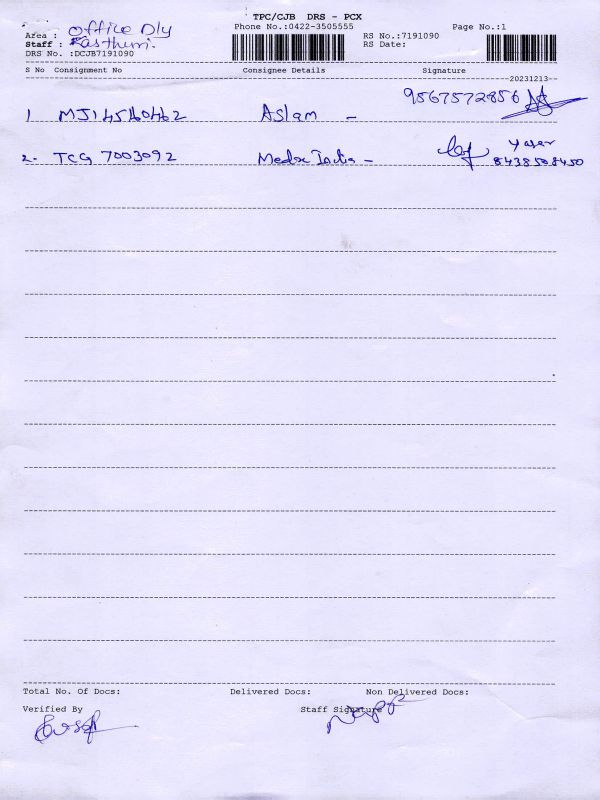 TPC/CJB DRS - PCX
Phone No.:0422-3505555
Page No.:1
Area : office Dly
Staff : Kasthuri.
RS No.:7191090
RS Date:
DRS No. :DCJB7191090
S No Consignment No Consignee Details Signature
20231213
1 Aslam - 9567572856
2. TCG 7003092 Yaser
8438508450
Total No. Of Docs: Delivered Docs: Non Delivered Docs:
Verified By Staff Signature